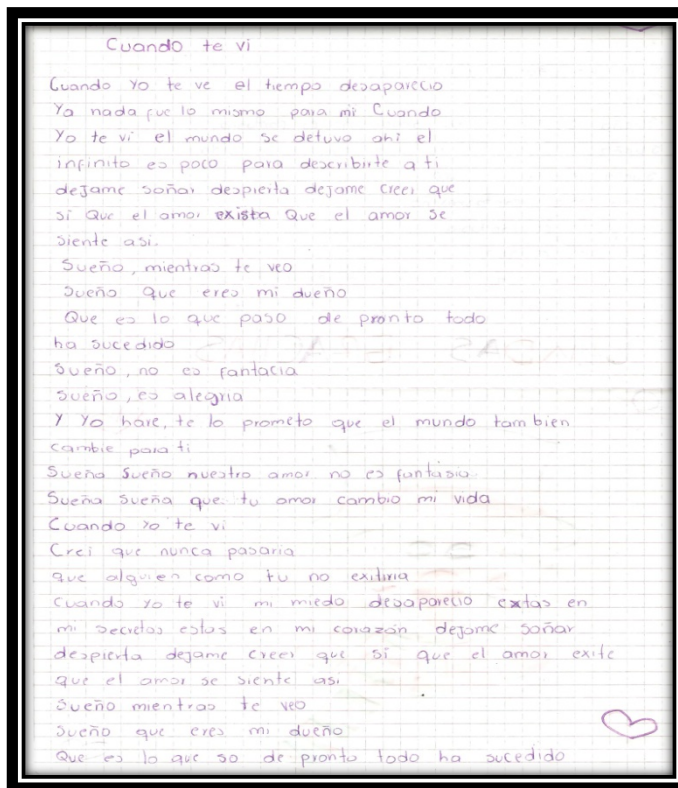 Cuando te vi
Cuando Yo te ve el tiempo desaparecio
Ya nada fue lo mismo para mi Cuando
Yo te vi el mundo se detuvo ahi el
infinito es poco para describirte a ti
dejame soñar despierta dejame creer que
si Que el amor exista Que el amor se
siente asi.
Sueño, mientras te veo
Sueño Que eres mi dueño
Que es lo que paso de pronto todo
ha sucedido
Sueño, no es fantacia
Sueño, es alegria
Y Yo hare, te lo prometo que el mundo tambien
cambie para ti
Sueña Sueño nuestro amor no es fantasia
Sueña Sueña que tu amor cambio mi vida
Cuando Yo te vi
Crei que nunca pasaria
que alguien como tu no exitiria
Cuando Yo te vi mi miedo desaparecio extas en
mi secretos estas en mi corazón dejame soñar
despierta dejame creer que si que el amor exite
que el amor se siente asi
Sueño mientras te veo
Sueño que eres mi dueño
Que es lo que so de pronto todo ha sucedido